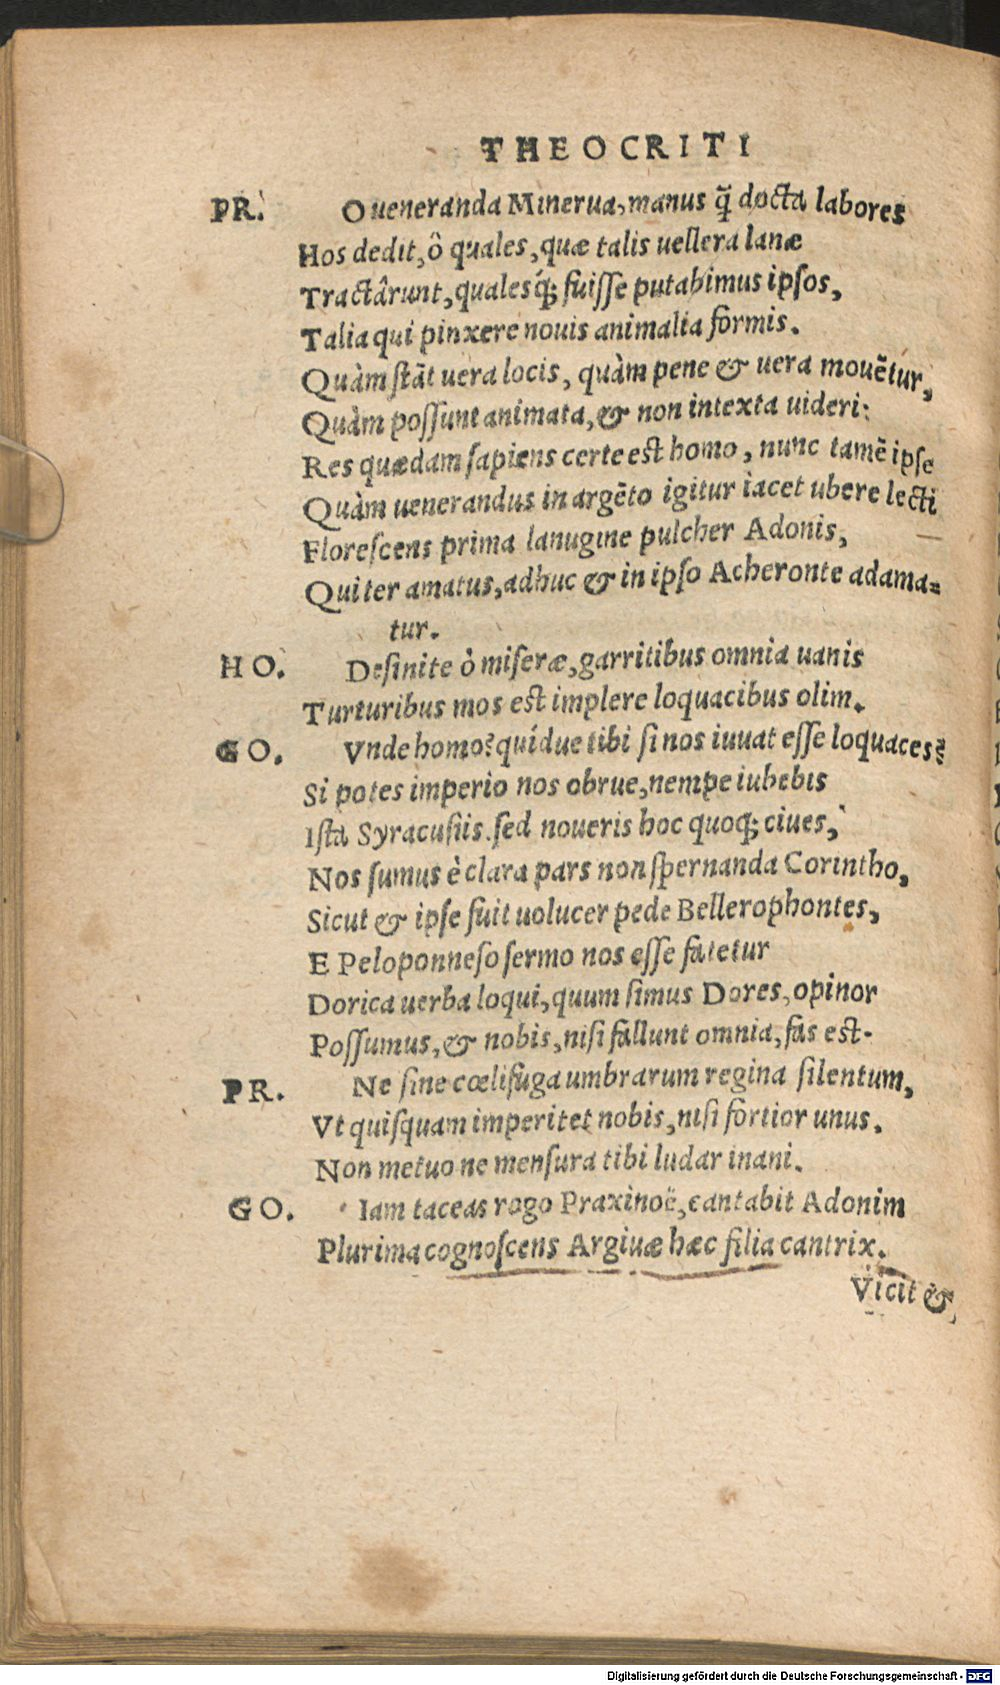 THEOCRITI
PR. O ueneranda Minerua, manus q̃ docta labores
Hos dedit, ô quales, quæ talis uellera lanæ
Tractârunt, qualesq́; fuisse putabimus ipsos,
Talia qui pinxere nouis animalia formis.
Quàm stāt uera locis, quàm pene & uera mouētur,
Quàm possunt animata, & non intexta uideri:
Res quædam sapiens certe est homo, nunc tamē ipse
Quàm uenerandus in argēto igitur iacet ubere lecti
Florescens prima lanugine pulcher Adonis,
Qui ter amatus, adhuc & in ipso Acheronte adama-
tur.
HO. Desinite ò miseræ, garritibus omnia uanis
Turturibus mos est implere loquacibus olim.
GO. Vnde homo? quídue tibi si nos iuuat esse loquaces?
Si potes imperio nos obrue, nempe iubebis
Ista Syracusiis. sed noueris hoc quoq; ciues,
Nos sumus è clara pars non spernanda Corintho,
Sicut & ipse fuit uolucer pede Bellerophontes,
E Peloponneso sermo nos esse fatetur
Dorica uerba loqui, quum simus Dores, opinor
Possumus, & nobis, nisi fallunt omnia, fas est.
PR. Ne sine cœlifuga umbrarum regina silentum,
Vt quisquam imperitet nobis, nisi fortior unus.
Non metuo ne mensura tibi ludar inani.
GO. Iam taceas rogo Praxinoë, cantabit Adonim
Plurima cognoscens Argiuæ hæc filia cantrix.
Vicit &
Digitalisierung gefördert durch die Deutsche Forschungsgemeinschaft - DFG